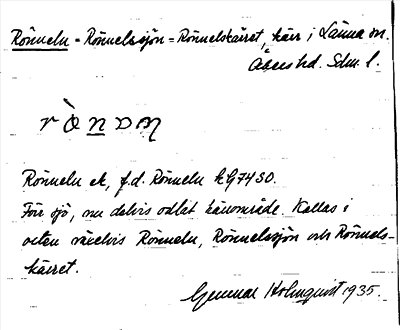 Rönneln = Rönnelssjön = Rönnelskärret, kärr i Länna sn.
Åkers hd. Sdm. l.
Rönneln ek, f.d. Rönneln
Förr sjö, nu delvis odlat kärrområde. Kallas i
orten växelvis Rönneln, Rönnelssjön och Rönnels-
kärret.
Gunnar Holmquist 1935.